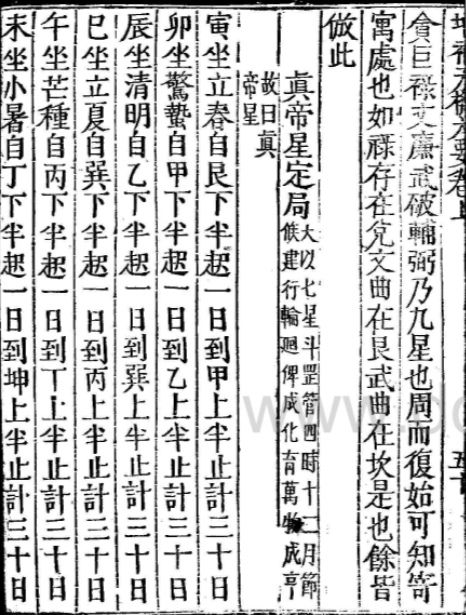 貪巨祿文廉武破輔弼乃九星也周而復始可知寄
寓處也如祿存在兌文曲在艮武曲在坎是也餘皆
倣此
真帝星定局
大以七星斗罡管四時十二月節
候建行輪廻俾成化育萬物成亨
故曰真
帝星
寅坐立春自艮下半起一日到甲上半止計三十日
卯坐驚蟄自甲下半起一日到乙上半止計三十日
辰坐清明自乙下半起一日到巽上半止計三十日
巳坐立夏自巽下半起一日到丙上半止計三十日
午坐芒種自丙下半起一日到丁上半止計三十日
未坐小暑自丁下半起一日到坤上半止計三十日